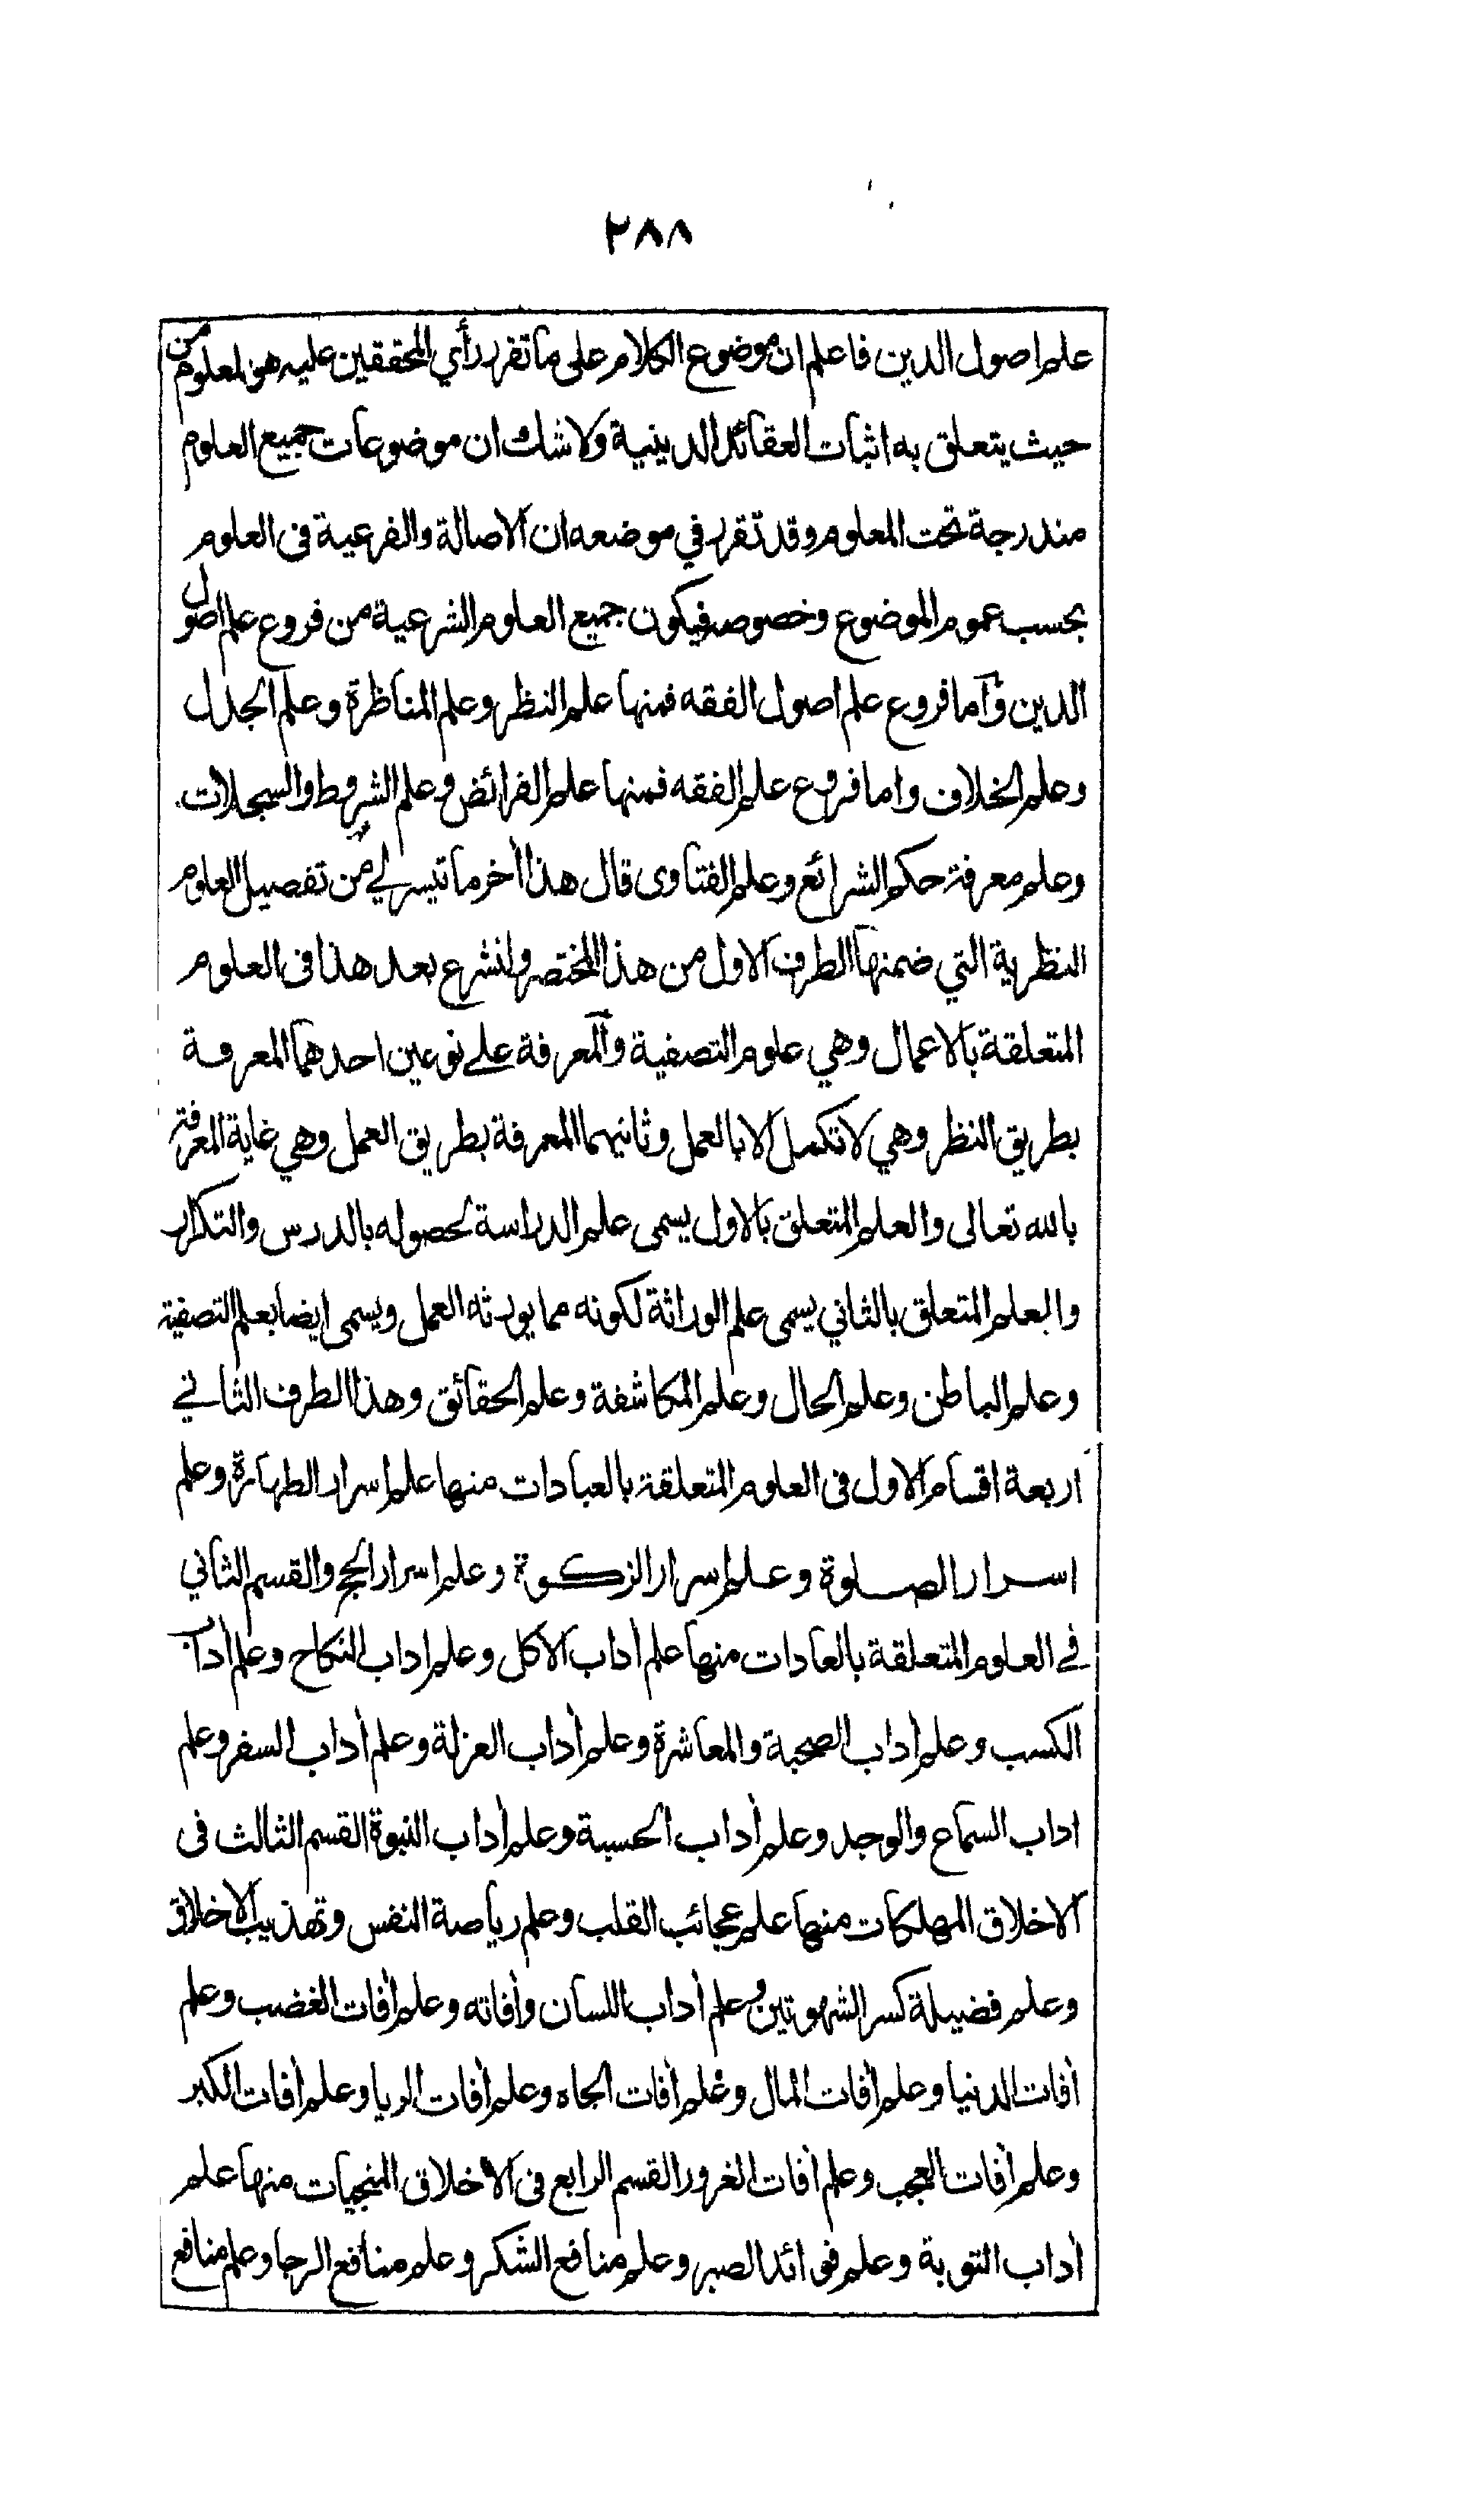 ٢٨٨
علم اصول الدين فاعلم ان موضوع الكلام على ما تقرر رأي المحققين عليه هو المعلوم من
حيث يتعلق به اثبات العقائد الدينية ولا شك ان موضوعات جميع العلوم
مندرجة تحت المعلوم وقد تقرر في موضعه ان الاصالة والفرعية فى العلوم
بحسب عموم الموضوع وخصوصه فيكون جميع العلوم الشرعية من فروع علم اصول
الدين وآما فروع علم اصول الفقه فمنها علم النظر وعلم المناظرة وعلم الجدل
وعلم الخلاف واما فروع علم الفقه فمنها علم الفرائض وعلم الشروط والسجلات
وعلم معرفة حكم الشرائع وعلم الفتاوى قال هذا أخر ما تيسر لي من تفصيل العلوم
النظرية التي ضمنها الطرف الاول من هذا المختصر ولنشرع بعد هذا فى العلوم
المتعلقة بالاعمال وهي علوم التصفية وآلمعرفة على نوعين احدهما المعرفة
بطريق النظر وهي لا تكمل الا بالعمل وثانيهما المعرفة بطريق العمل وهي غاية المعرفة
بالله تعالى والعلم المتعلق بالاول يسمى علم الدراسة لحصوله بالدرس والتكرار
والعلم المتعلق بالثاني يسمى علم الوراثة لكونه مما يورثه العمل ويسمى ايضا بعلم التصفية
وعلم الباطن وعلم الحال وعلم المكاشفة وعلم الحقائق وهذا الطرف الثاني
اربعة اقسام الاول فى العلوم المتعلقة بالعبادات منها علم اسرار الطهارة وعلم
اسرار الصلوة وعلم اسرار الزكوة وعلم اسرار الحج والقسم الثاني
في العلوم المتعلقة بالعادات منها علم أداب الاكل وعلم اداب النكاح وعلم أداب
الكسب وعلم أداب الصحبة والمعاشرة وعلم أداب العزلة وعلم أداب السفر وعلم
اداب السماع والوجد وعلم أداب الحسبة وعلم أداب النبوة القسم الثالث فى
الاخلاق المهلكات منها علم عجائب القلب وعلم رياضة النفس وتهذيب الاخلاق
وعلم فضيلة كسر الشهوتين وعلم أداب اللسان وأفاته وعلم أفات الغضب وعلم
أفات الدنيا وعلم أفات المال وعلم أفات الجاه وعلم أفات الريا وعلم أفات الكبر
وعلم أفات العجب وعلم أفات الغرور القسم الرابع فى الاخلاق المنجيات منها علم
أداب التوبة وعلم فوائد الصبر وعلم منافع الشكر وعلم منافع الرجا وعلم منافع